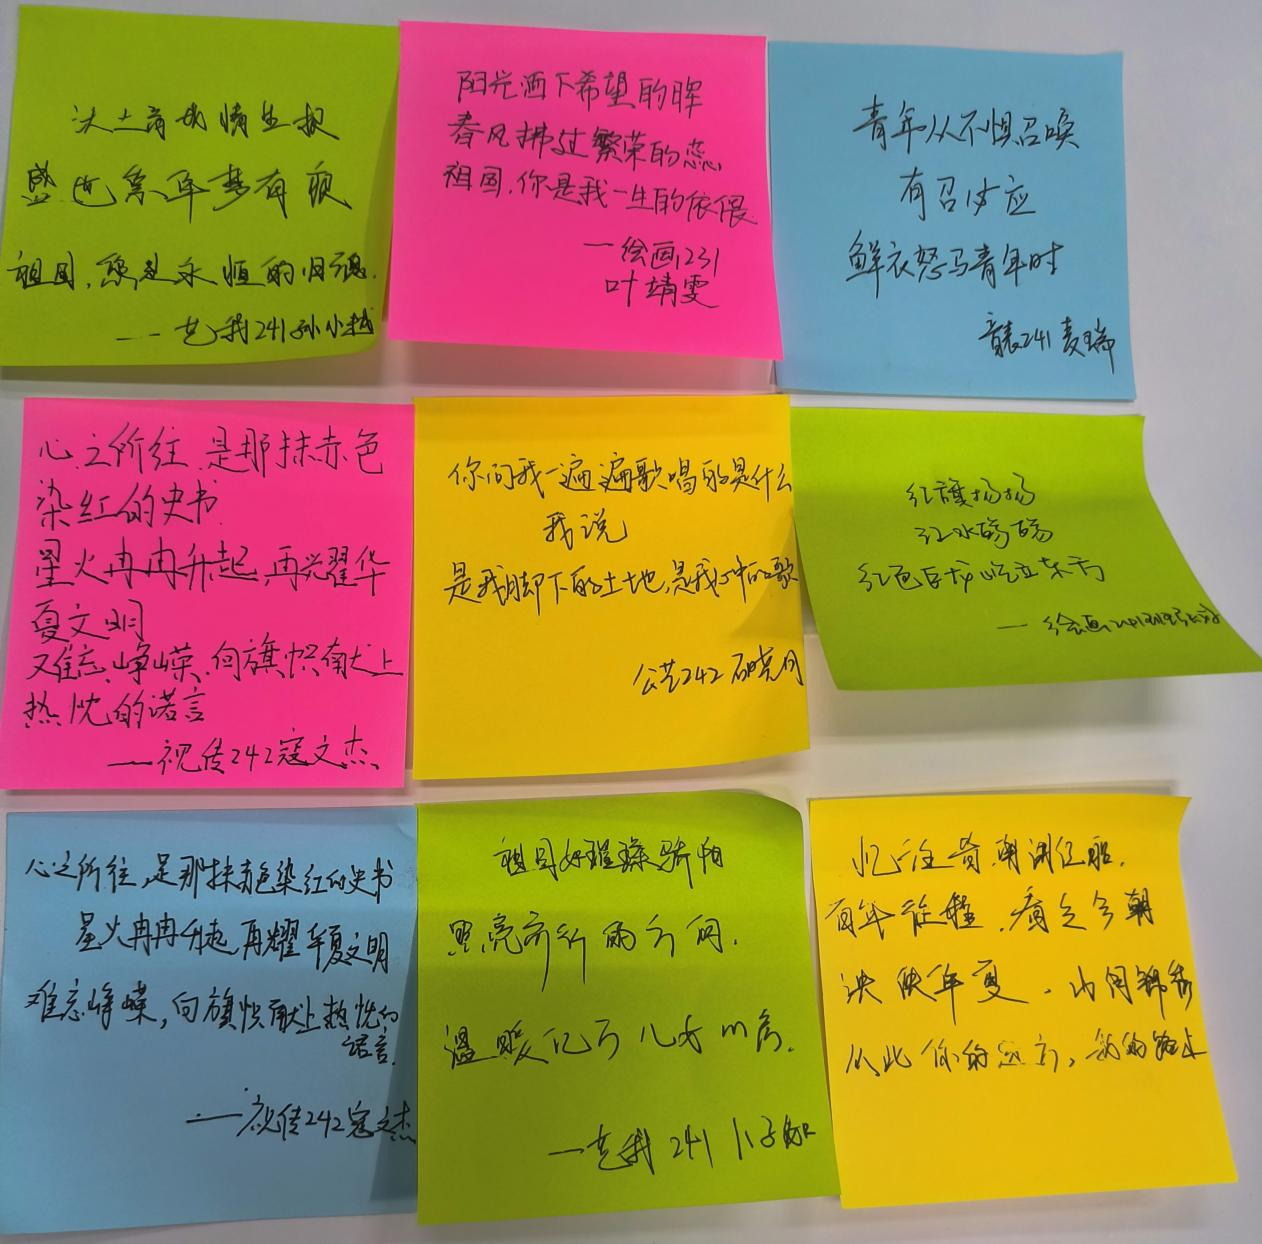 沃土育我情生根
盛世华年梦有痕
祖国，您是永恒的归魂.
——艺我241孙小越
阳光洒下希望的晖
春风拂过繁荣的蕊
祖国,你是我一生的依偎
——绘画231
叶靖雯
青年从不惧召唤
有召必应
鲜衣怒马青年时
音表241 麦瑞
心之所往,是那抹赤色
染红的史书
星火冉冉升起,再兴耀华
夏文明
难忘峥嵘,向旗帜献上
热忱的诺言
——视传242寇文杰
你问我一遍遍歌唱的是什么
我说
是我脚下的土地,是我心中的歌
公艺242 石晓月
红旗扬扬
江水荡荡
红色巨龙屹立东方
——绘画
心之所往,是那抹赤色染红的史书
星火冉冉升起,再耀华夏文明
难忘峥嵘,向旗帜献上热忱的
诺言.
——视传242寇文杰
祖国好璀璨骄阳
照亮前行的方向.
温暖亿万儿女心房.
——艺我241
忆往昔,南湖红船.
百年征程,奠定今朝
泱泱华夏,山河锦绣
从此你的远方,我的路上